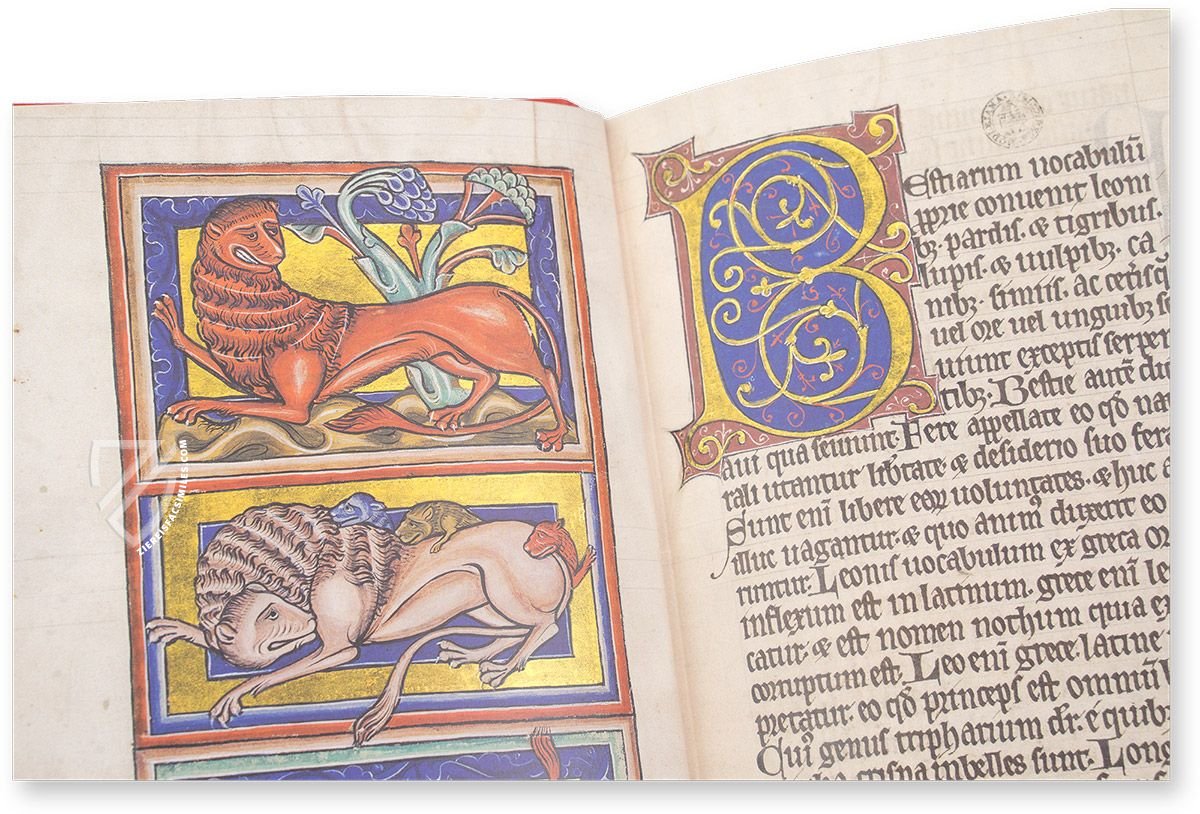 Bestiarum uocabulū
ꝓprie conuenit leoni
bꝫ pardis. & tigribus.
lupis. & uulpibꝫ. ca
nibꝫ. simiis. ac ceterisq̄
uel ore uel unguibꝫ se
uiunt exceptis serpen
tibꝫ. Bestie autē dic
aut qua seuiunt. Fere appellate eo qd̓ nat
rali utantur libertate & desiderio suo fera
Sunt eni libere eoꝝ uoluntates. & huc a
illuc uagantur. & quo anim̄ duxerit eo
runtur. Leonis uocabulum ex greca ori
inflexum est in latinum. grece eni le
catur. & est nomen nothum quia ex
corruptum est. Leo eni grece. latine
pretatur. eo qd̓ princeps est omniū b
Cui genus tripharium dr̄. e quibꝫ
crispa inbelles sunt. Long
ZIEREIS FACSIMILES.COM